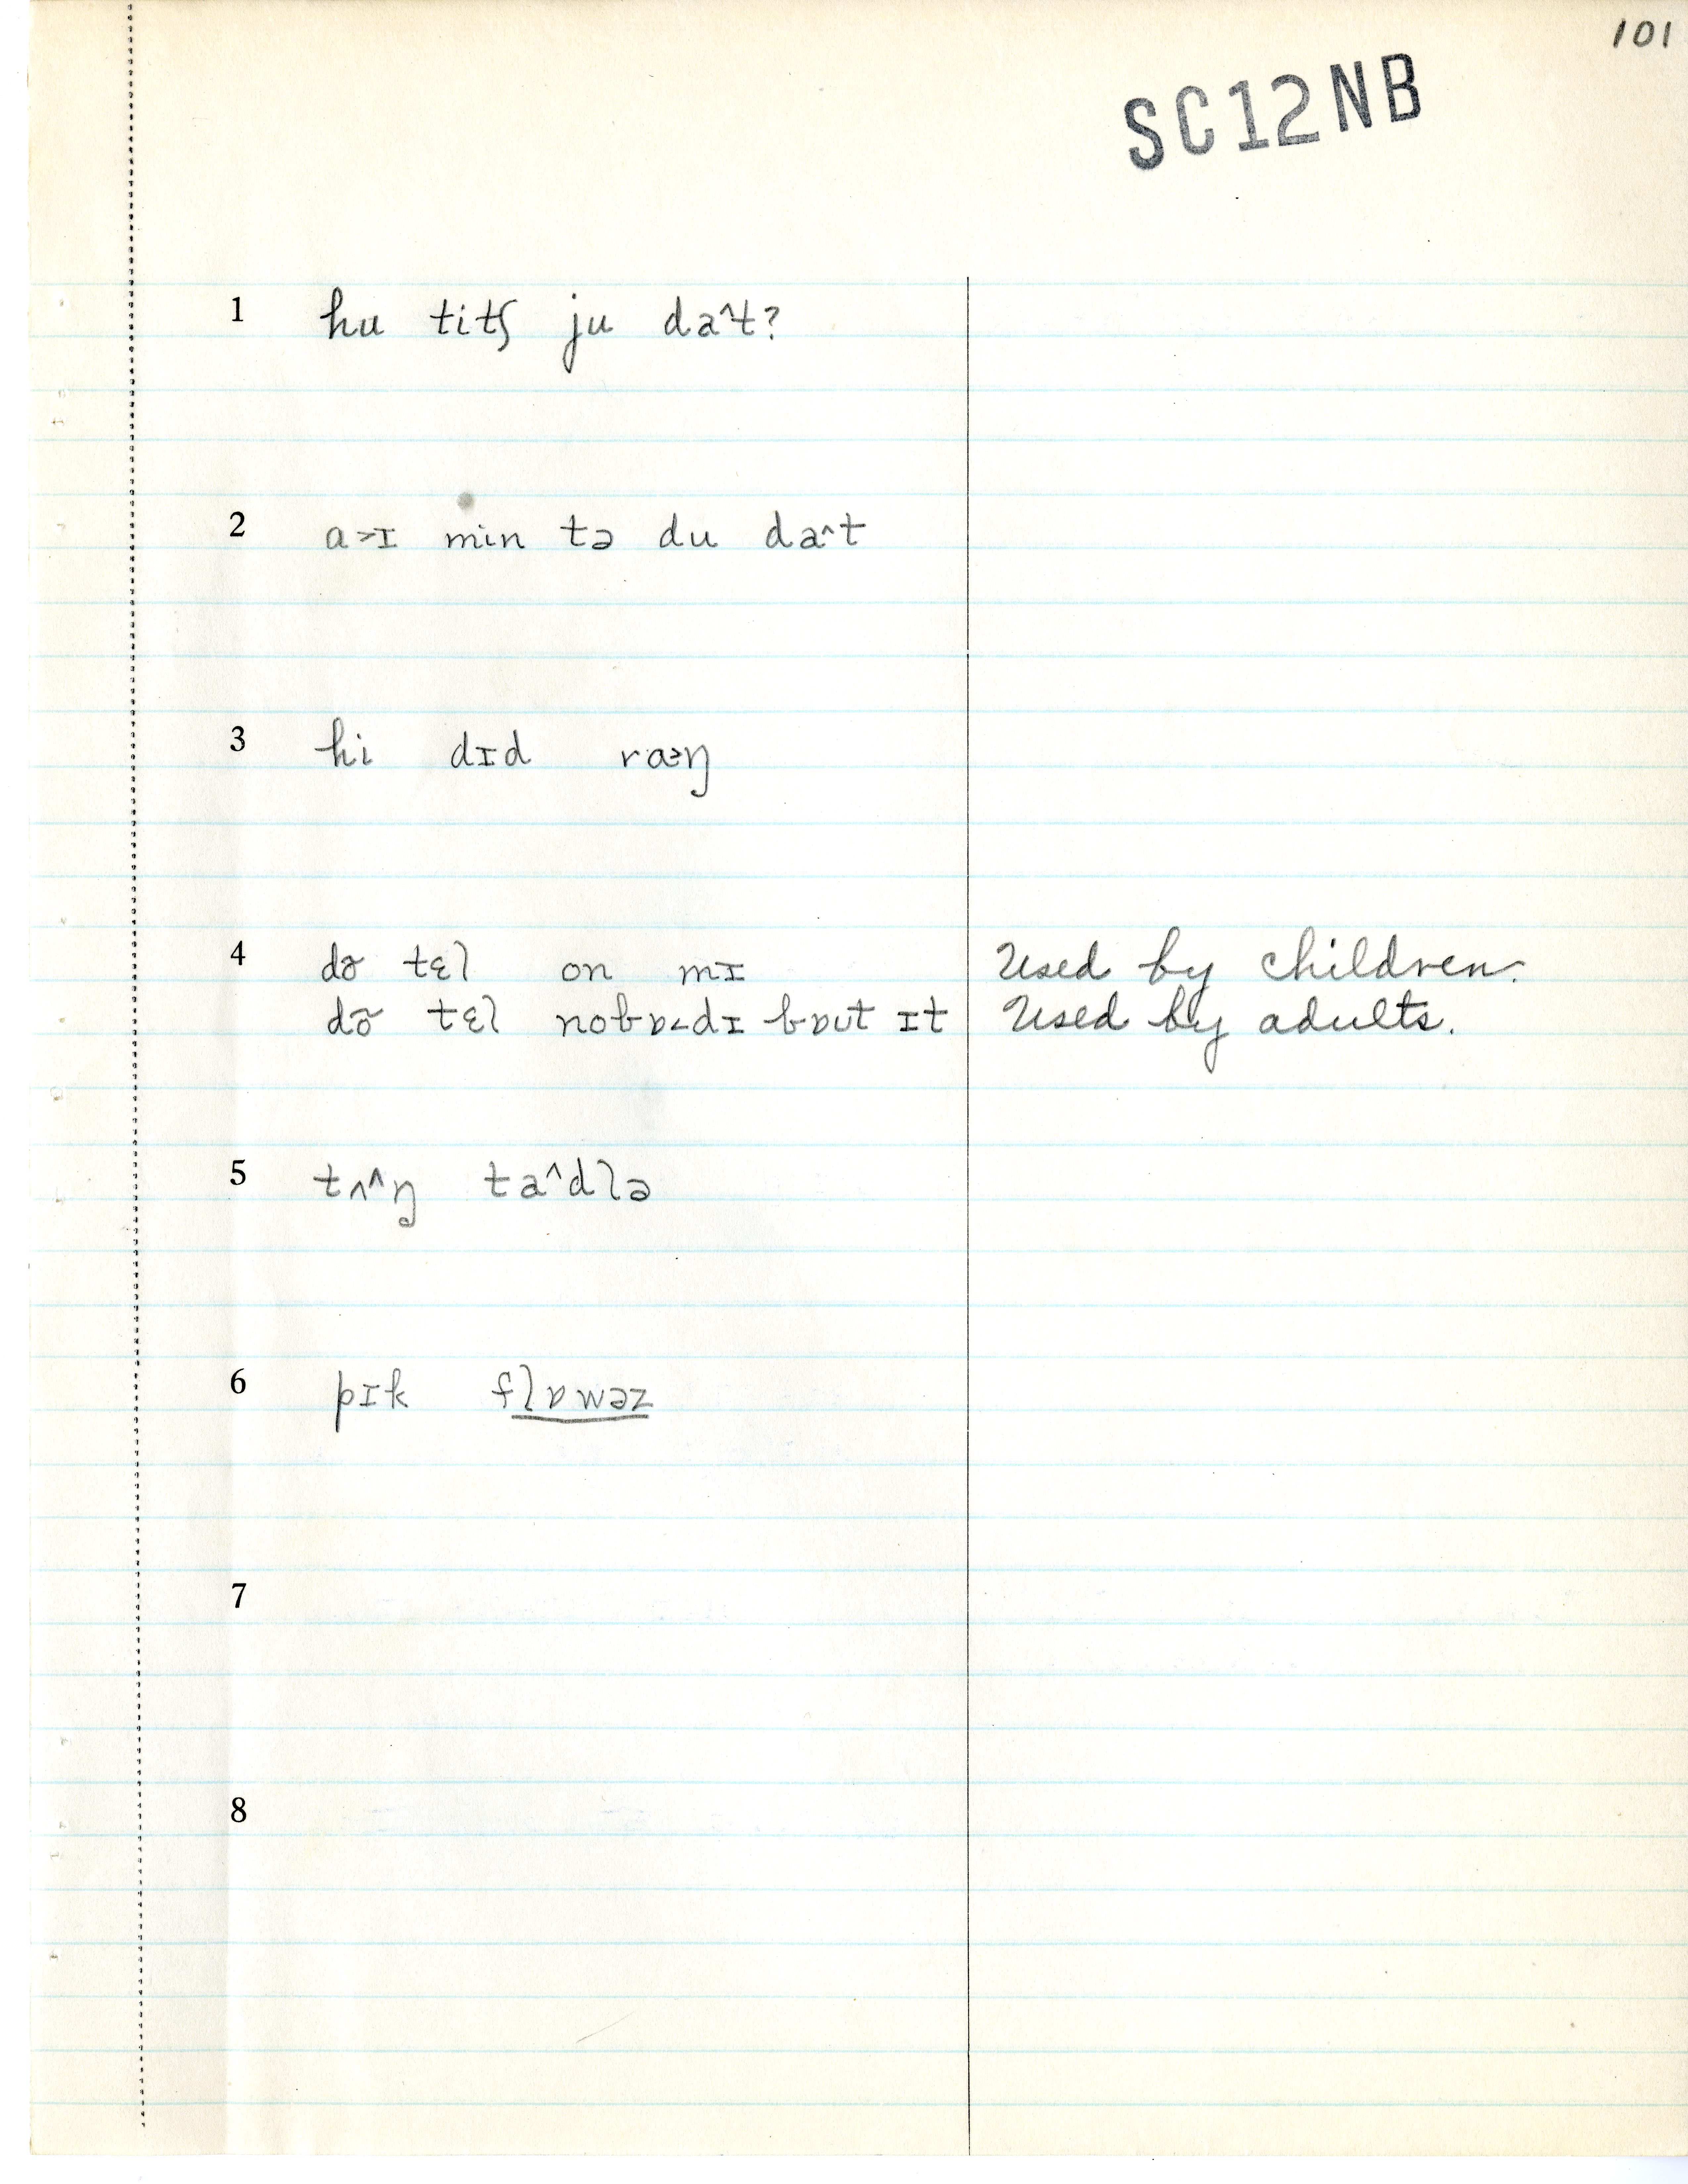 101
SC12NB
1 hu titʃ ju da^t?
2 a>ɪ min tə du da^t
3 hi dɪd ra>ŋ
4 dõ tɛl on mɪ Used by children.
dõ tɛl nobɒ<dɪ bɒut ɪt Used by adults.
5 tʌ^ŋ ta^dlə
6 pɪk flɒwəz
7
8